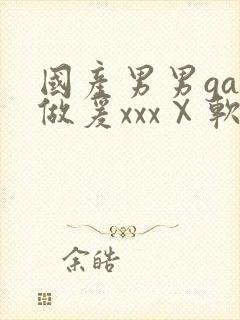 國產男男ga
做爰xxxⅩ軟
余皓